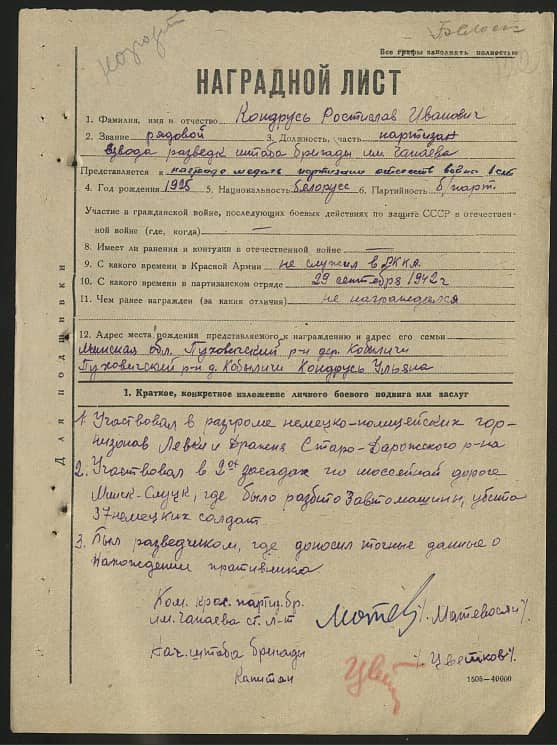 Все графы заполнять полностью
НАГРАДНОЙ ЛИСТ
1. Фамилия, имя и отчество Кондрусь Ростислав Иванович
2. Звание рядовой 3. Должность, часть партизан
взвода разведк штаба бригады им Чапаева
Представляется к награде медаль партизану отечеств войны
4. Год рождения 1925 5. Национальность белорусс 6. Партийность б/парт.
Участие в гражданской войне, последующих боевых действиях по защите СССР в отечествен-
ной войне (где, когда) —
8. Имеет ли ранения и контузии в отечественной войне —
9. С какого времени в Красной Армии не служил в РККА
10. С какого времени в партизанском отряде 29 сентября 1942 г
11. Чем ранее награжден (за какие отличия) не награждался
12. Адрес места рождения представляемого к награждению и адрес его семьи
Минская обл. Пуховичский р-н дер. Кобыличи
Пуховичский р-н д. Кобыличи Кондрусь Ульяна
Для подшивки
1. Краткое, конкретное изложение личного боевого подвига или заслуг
1. Участвовал в разгроме немецко-полицейских гар-
низонов Левки и Дражня Старо-Дарожского р-на
2. Участвовал в 2ох засадах по шоссейной дороге
Минск-Слуцк, где было разбито 3 автомашины, убито
37 немецких солдат
3. Был разведчиком, где доносил точные данные о
нахождении противника
Ком. Крас. партиз. бр.
им. Чапаева ст. л-т /Матевосян/
Нач. штаба бригады
Капитан /Цветков/
1506-40000